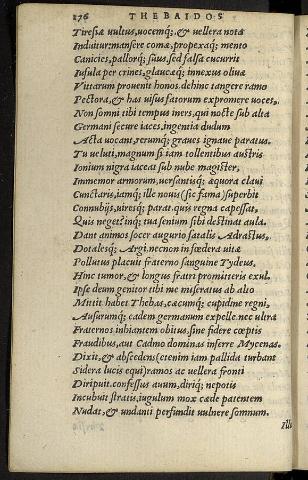 276 THEBAIDOS
Tiresiæ uultus, uocemq;, & uellera nota
Induitur: mansere comæ, propexaq; mento
Canicies, pallorq; suus, sed falsa cucurrit
Insula per crines, glaucæq; innexus oliuæ
Vittarum prouenit honos. dehinc tangere ramo
Pectora, & has uisus fatorum expromere uoces.
Non somni tibi tempus iners, qui nocte sub alta
Germani secure iaces, ingentia dudum
Acta uocant, rerumq; graues ignaue paratus.
Tu ueluti, magnum si iam tollentibus austris
Ionium nigra iaceat sub nube magister,
Immemor armorum, uersantisq; æquora claui
Cunctaris, iamq; ille nouis (sic fama) superbit
Connubijs, uiresq; parat quis regna capessat,
Quis neget? inq; tua senium sibi destinat aula.
Dant animos socer augurio fatalis Adrastus.
Dotalesq; Argi, necnon in fœdera uitæ
Pollutus placuit fraterno sanguine Tydeus.
Hinc tumor, & longus fratri promitteris exul.
Ipse deum genitor tibi me miseratus ab alto
Mittit habet Thebas, cæcumq; cupidine regni,
Ausurumq; eadem germanum expelle. nec ultra
Fraternos inhiantem obitus, sine fidere cœptis
Fraudibus, aut Cadmo dominas inferre Mycenas.
Dixit, & abscedens (etenim iam pallida turbant
Sidera lucis equi) ramos ac uellera fronti
Diripuit. confessus auum, diriq; nepotis
Incubuit stratis, iugulum mox cæde patentem
Nudat, & undanti perfundit uulnere somnum.
Ill